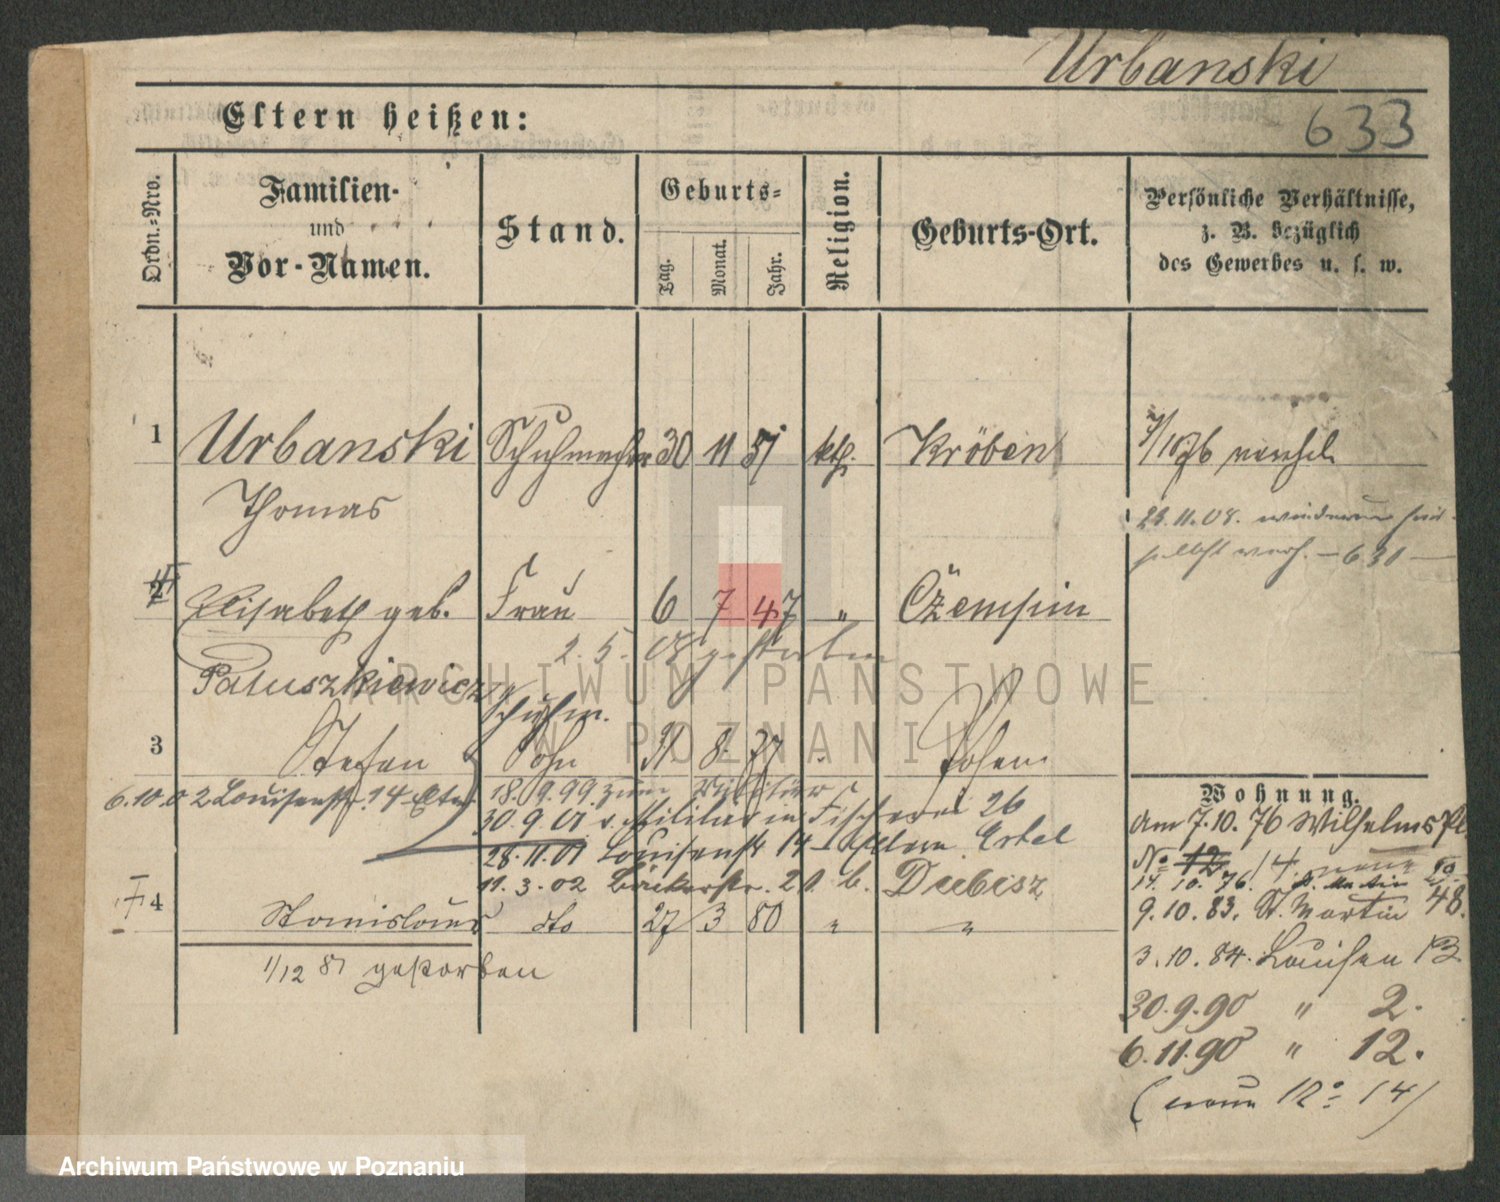 Urbanski
633
Eltern heißen:
Ordn.-Nro.
Familien-
und
Vor-Namen.
Stand.
Geburts-
Tag.
Monat.
Jahr.
Religion.
Geburts-Ort.
Persönliche Verhältnisse,
z. B. bezüglich
des Gewerbes u. s. w.
1 Urbanski Schuhmacher 30 11 51 kth. Kröben
Thomas
23.11.08.
selbst verh. – 630 –
2 Elisabeth geb. Frau 6 7 47 " Czempin
2. 5. 08 gestorben
Patuszkiewicz
Schuhm.
3 Stefan Sohn 31 8 77 " Posen
6.10.02 Louisenstr. 14 Eltern
18.9.99 zum Militär
30.9.01 v. Militär in Fischerei 26
28.11.01 Louisenstr 14 Eltern
11.3.02 Bäckerstr. 21 b. Dubisz
4 Stanislaus dto 27 3 80 " "
1/12 81 gestorben
Wohnung.
am 7.10.76 Wilhelms Pl
No 12 14.
14.10.76. St. Martin
9.10.83. St. Martin 48.
3.10.84. Louisen 13
30.9.90 " 2.
6.11.90 " 12.
(neue No 14)
ARCHIWUM PAŃSTWOWE
W POZNANIU
Archiwum Państwowe w Poznaniu